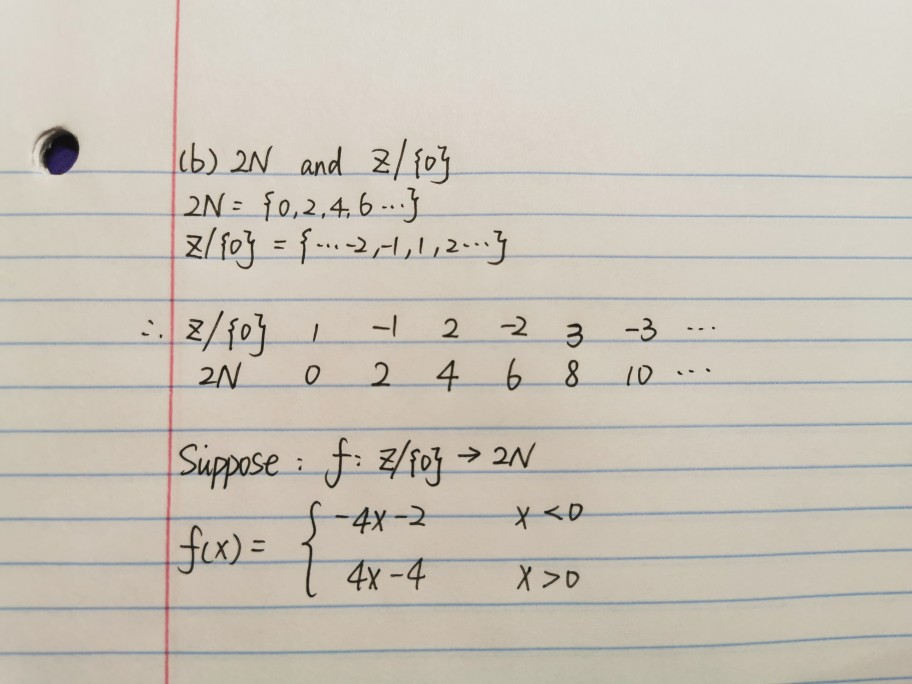 (b) 2N and Z/{0}
2N = {0,2,4,6 ...}
Z/{0} = {... -2,-1,1,2 ...}
∴ Z/{0} 1 -1 2 -2 3 -3 ...
2N 0 2 4 6 8 10 ...
Suppose : f: Z/{0} → 2N
f(x) = { -4x-2 x<0
4x-4 x>0